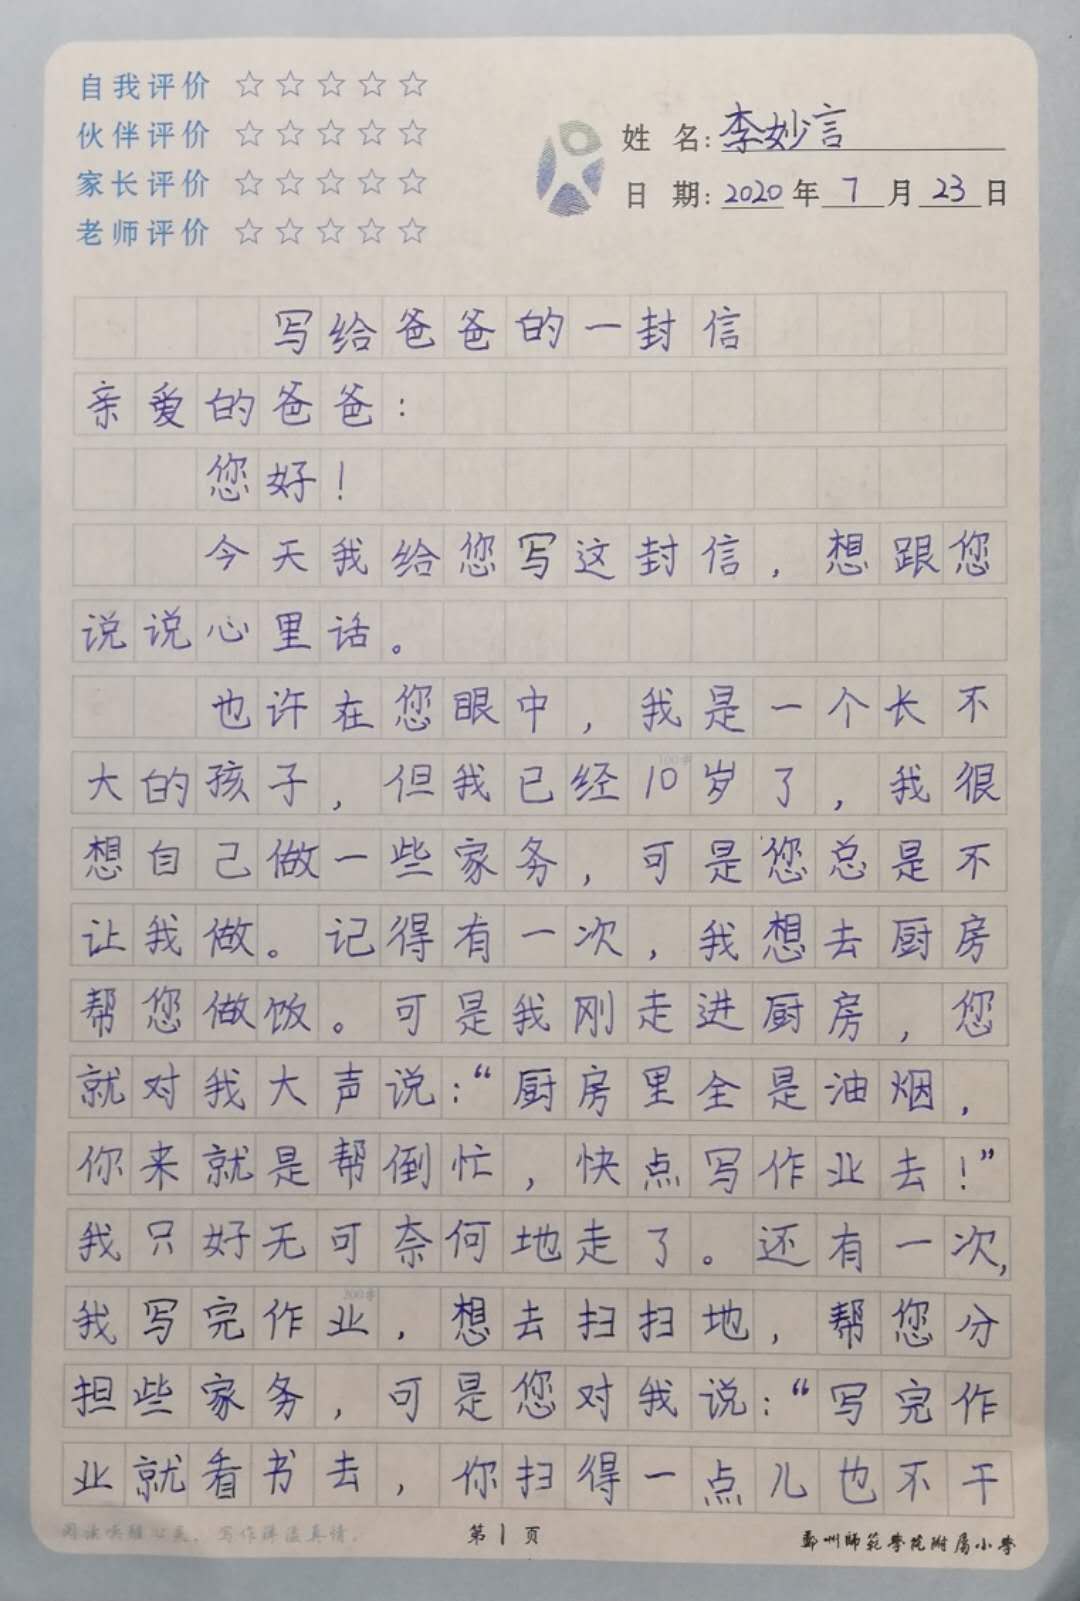 自我评价 ☆☆☆☆☆
伙伴评价 ☆☆☆☆☆
家长评价 ☆☆☆☆☆
老师评价 ☆☆☆☆☆
姓名:李妙言
日期:2020年7月23日
写给爸爸的一封信
亲爱的爸爸:
您好!
今天我给您写这封信,想跟您
说说心里话。
也许在您眼中,我是一个长不
大的孩子,但我已经10岁了,我很
想自己做一些家务,可是您总是不
让我做。记得有一次,我想去厨房
帮您做饭。可是我刚走进厨房,您
就对我大声说:“厨房里全是油烟,
你来就是帮倒忙,快点写作业去!”
我只好无可奈何地走了。还有一次,
我写完作业,想去扫扫地,帮您分
担些家务,可是您对我说:“写完作
业就看书去,你扫得一点儿也不干
写作洋溢真情。
第1页
郑州师范学院附属小学